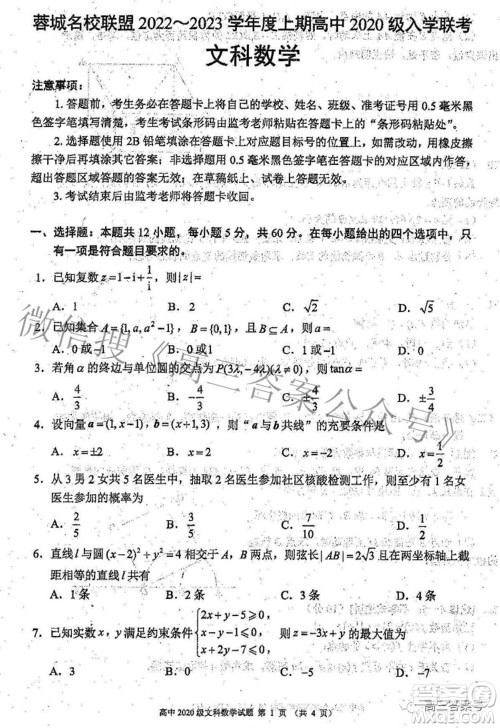 蓉城名校联盟 2022～2023 学年度上期高中 2020 级入学联考
文科数学
注意事项：
1. 答题前，考生务必在答题卡上将自己的学校、姓名、班级、准考证号用 0.5 毫米黑
色签字笔填写清楚，考生考试条形码由监考老师粘贴在答题卡上的“条形码粘贴处”。
2. 选择题使用 2B 铅笔填涂在答题卡上对应题目标号的位置上，如需改动，用橡皮擦
擦干净后再填涂其它答案；非选择题用 0.5 毫米黑色签字笔在答题卡的对应区域内作答，
超出答题区域答题的答案无效；在草稿纸上、试卷上答题无效。
3. 考试结束后由监考老师将答题卡收回。
一、选择题：本题共 12 小题，每小题 5 分，共 60 分。在每小题给出的四个选项中，只
有一项是符合题目要求的。
1. 已知复数 z=1-i+1/i，则|z|=
A. 1 B. 2 C. √2 D. √5
2. 已知集合 A={1,a,a²-1}，B={0,1}，且 B⊆A，则 a=
A. 0或-1 B. 0或1 C. -1 D. 0
3. 若角α的终边与单位圆的交点为 P(3λ,-4λ)(λ≠0)，则 tanα=
A. -4/3 B. 4/3 C. -3/4 D. ±3/4
4. 设向量 a=(1,x-1)，b=(x+1,3)，则“a 与 b 共线”的充要条件是
A. x=±2 B. x=2 C. x=-2 D. x=1/2
5. 从 3 男 2 女共 5 名医生中，抽取 2 名医生参加社区核酸检测工作，则至少有 1 名女
医生参加的概率为
A. 2/5 B. 3/5 C. 7/10 D. 1/2
6. 直线 l 与圆 (x-2)²+y²=4 相交于 A，B 两点，则弦长|AB|=2√3 且在两坐标轴上截
距相等的直线 l 共有
A. 1条 B. 2条 C. 3条 D. 4条
7. 已知实数 x，y 满足约束条件 {2x+y-5≤0, x-y-1≤0, x-1≥0, 则 z=-3x+y 的最大值为
A. -3 B. 3 C. 0 D. -7
高中 2020 级文科数学试题 第 1 页（共 4 页）
微信搜《高三答案公众号》
高三答案号